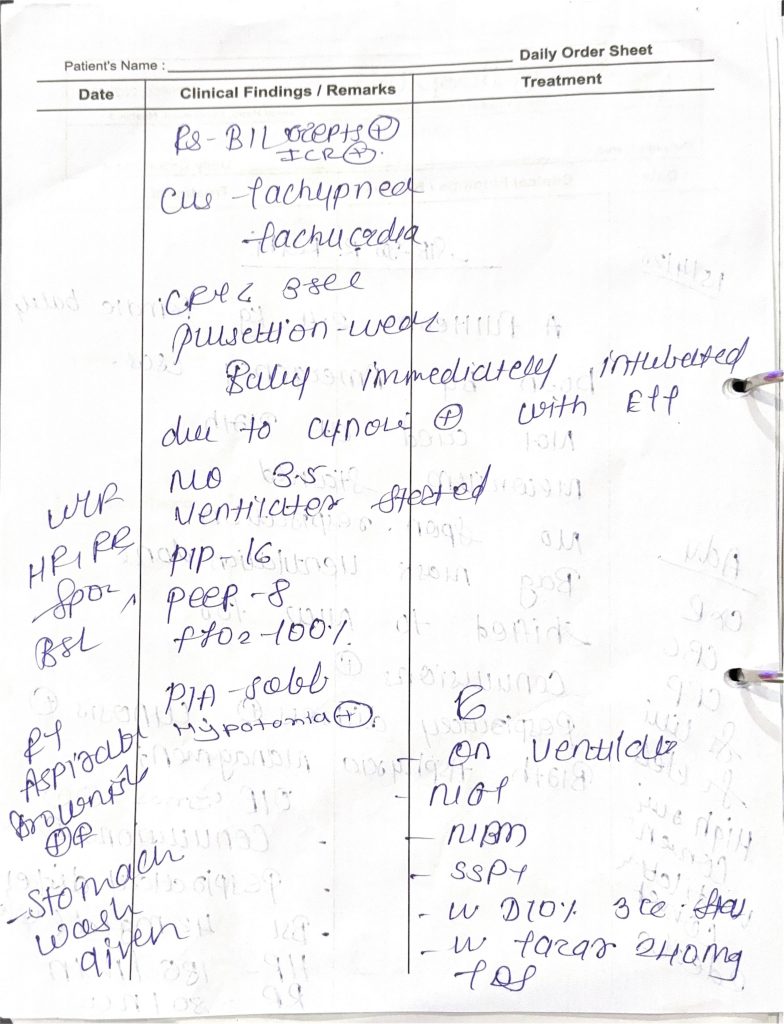 Daily Order Sheet
Patient's Name :
Date Clinical Findings / Remarks Treatment
RS - B/L crepts ⊕
ICR ⊕.
CVS - tachypnea
- tachycardia
CRT < 3sec
pulsettion - weak
Baby immediately intubated
due to cynosis ⊕ with ETT
NO 3.5
ventilater started
PIP - 16
PEEP - 8
FIO2 - 100%
P/A - soft
Hypotonia ⊕.
HR, RR
SpO2
BSL
RT
Aspirate
Brownish
⊕
- Stomach
wash
given
- on ventilate
- NBM
- IV D10% 3cc stat
- IV 240mg
TDS